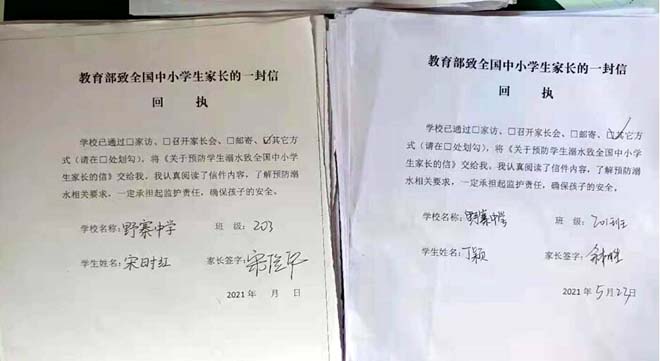 教育部致全国中小学生家长的一封信
回 执
学校已通过□家访、□召开家长会、□邮寄、☑其它方
式（请在□处划勾），将《关于预防学生溺水致全国中小学
生家长的信》交给我。我认真阅读了信件内容，了解预防溺
水相关要求，一定承担起监护责任，确保孩子的安全。
学校名称：野寨中学 班 级：203
学生姓名：宋时红 家长签字：
2021 年 月 日
教育部致全国中小学生家长的一封信
回 执
学校已通过□家访、□召开家长会、□邮寄、☑其它方
式（请在□处划勾），将《关于预防学生溺水致全国中小学
生家长的信》交给我。我认真阅读了信件内容，了解预防溺
水相关要求，一定承担起监护责任，确保孩子的安全。
学校名称：野寨中学 班 级：201班
学生姓名：丁颖 家长签字：
2021 年 5 月 23 日